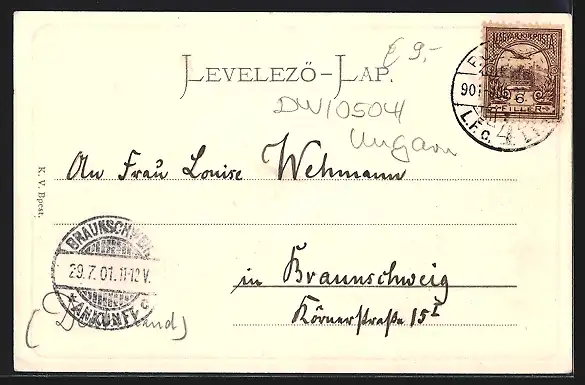 € 9,-
LEVELEZŐ-LAP.
MAGYAR KIR. POSTA
6
FILLER
901
L.F.C.
DW105041
Ungarn
An Frau Louise Wehmann
K. V. Bpest.
BRAUNSCHWEIG
29.7.01.11-12V.
*ANKUNFT c
in Braunschweig
Körnerstraße 15 I
(Deutschland)